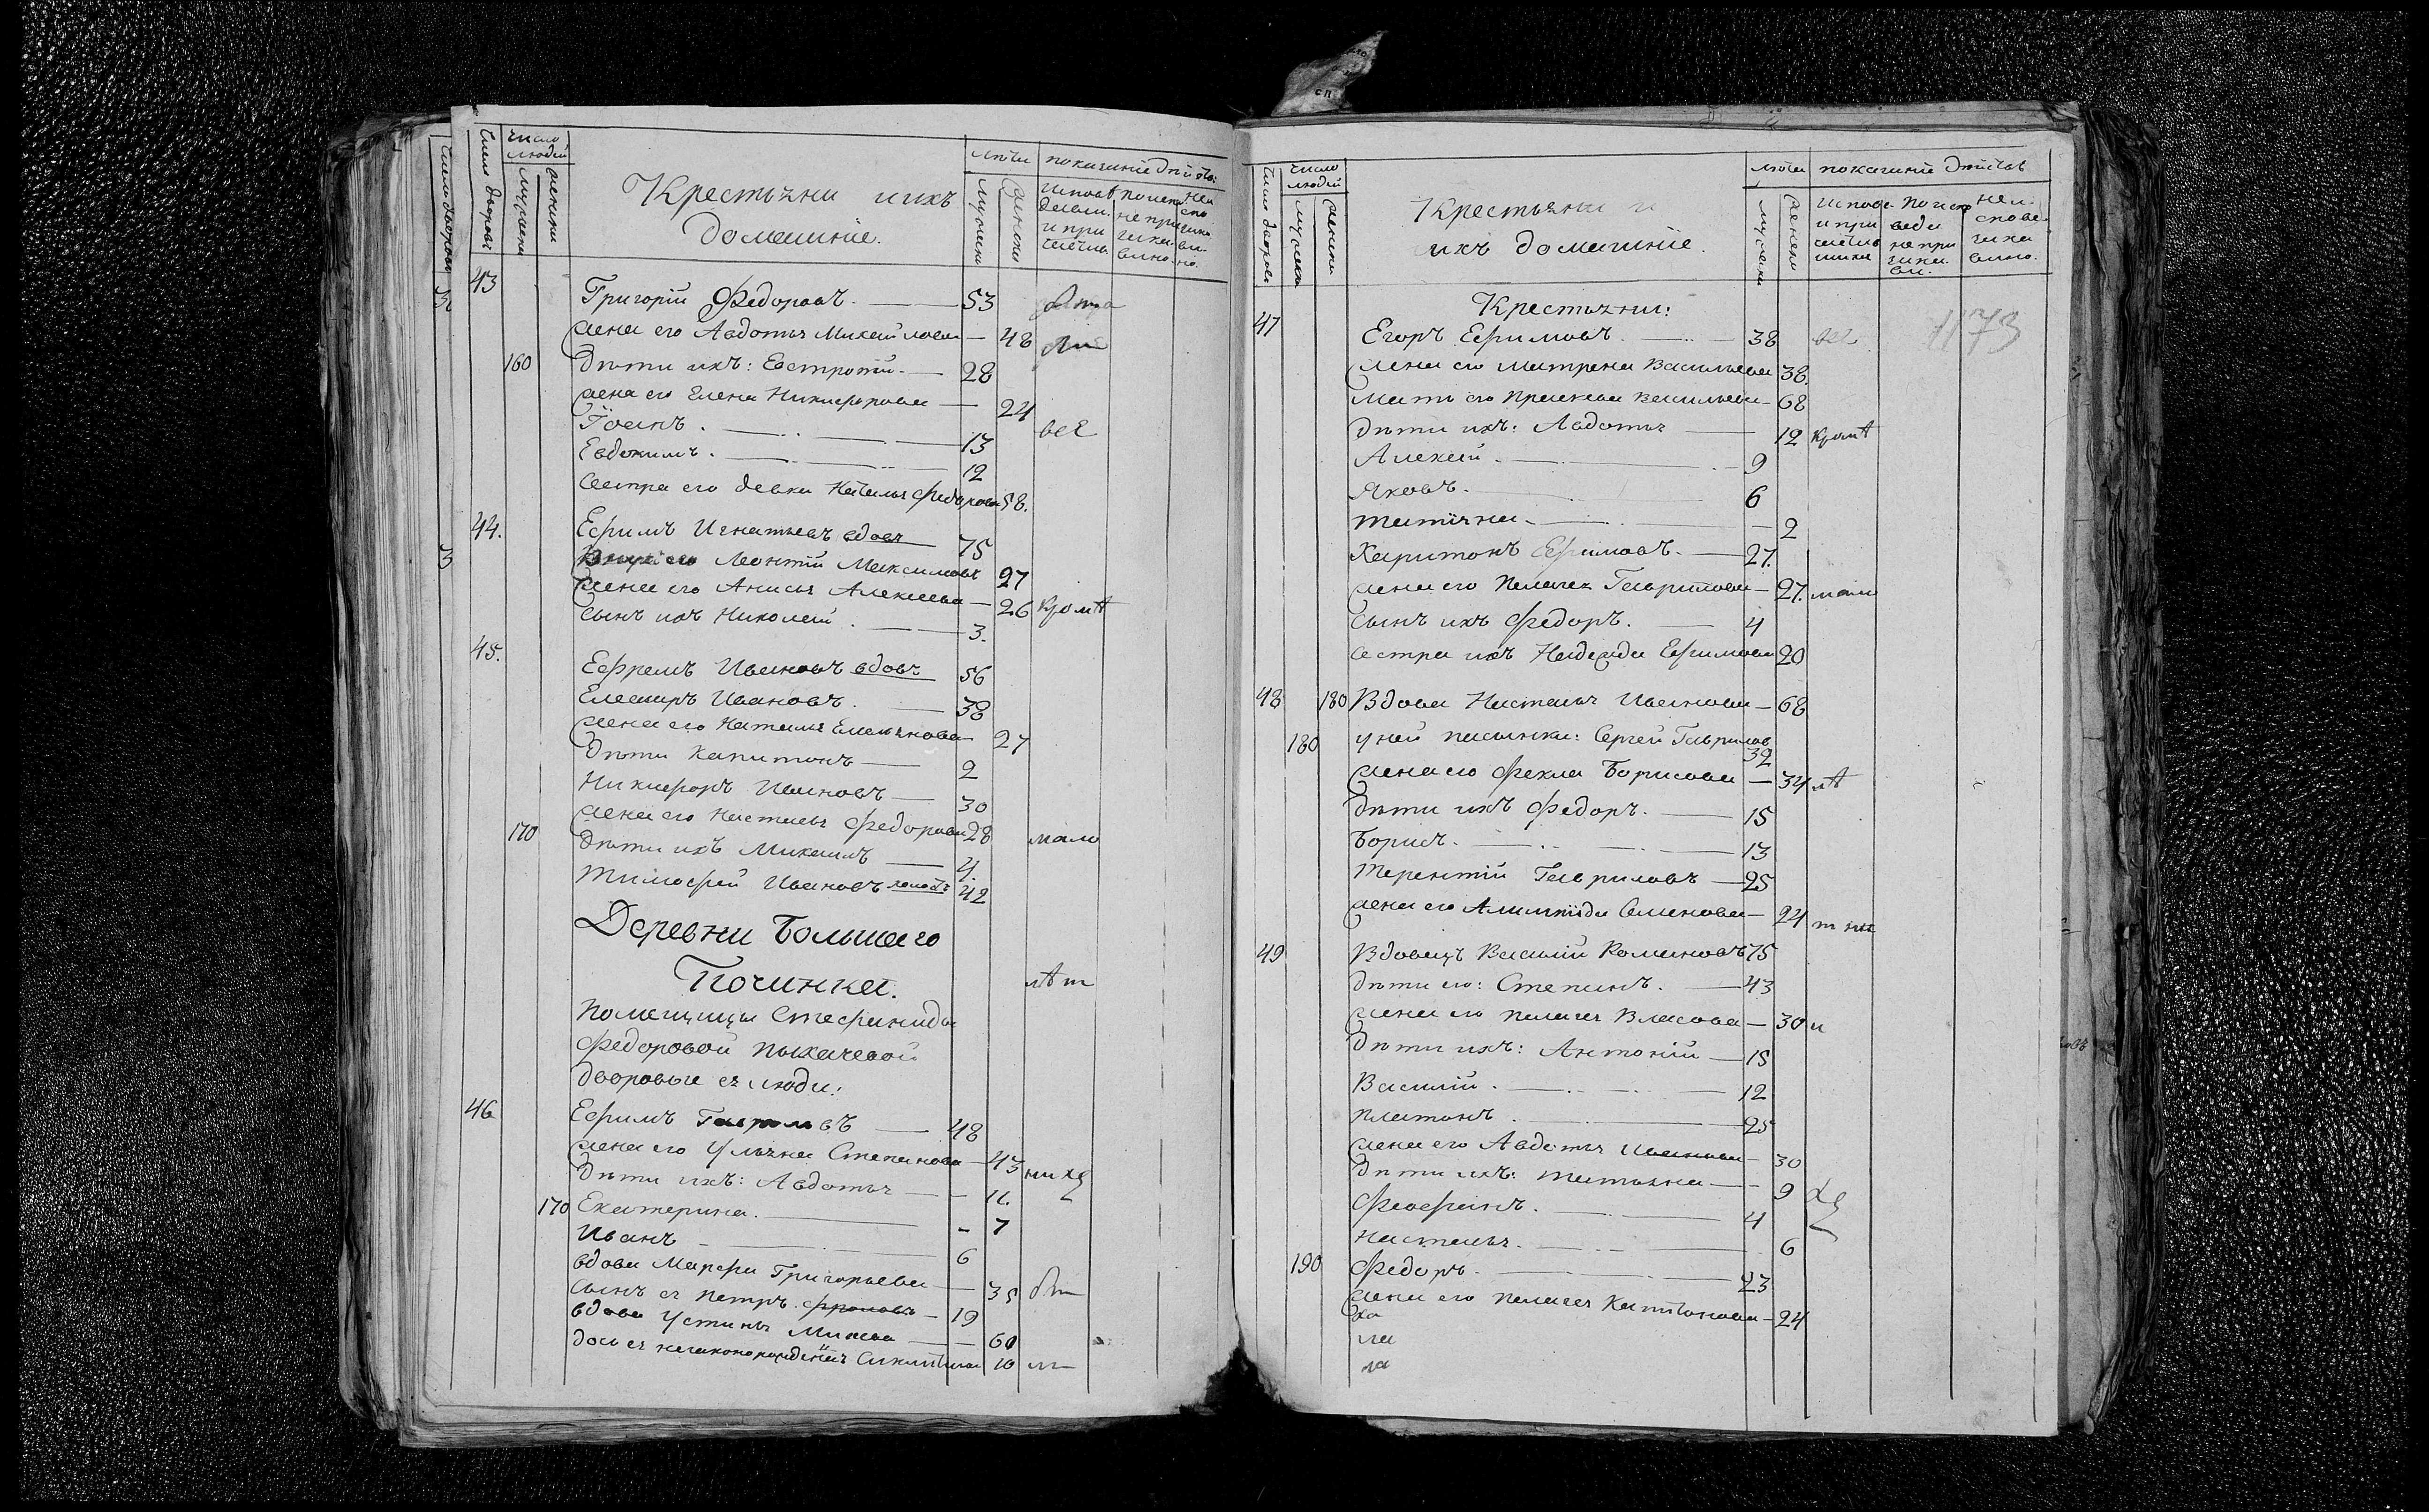 число дворовъ
число людей
мужеска
женска
Крестьяни и ихъ
домашніе.
лѣты
мужска
женска
показаніе дѣйств:
43 Григорій Федоровъ. 53
жена его Авдотья Михайлова 48
160 Дѣти ихъ: Евстротій 28
жена его Елена Никифорова 24
Іосипъ. 13 все
Евдокимъ. 12
Сестра его девка Наталья Федорова 58.
44. Ефимъ Игнатьевъ вдовъ 75
Леонтій Максимовъ 27
жена его Анисья Алексеева 26 кромѣ
Сынъ ихъ Николай. 3.
45. Ефремъ Ивановъ вдовъ 56
Елеазаръ Ивановъ. 38
жена его Наталья Емельянова 27
Дѣти Капитонъ 2
Никифоръ Ивановъ 30
жена его Настасья Федорова 28 мало
170 Дѣти ихъ Михаилъ 4.
Тимофей Ивановъ холостъ 42
Деревни Большаго
Починка. лѣт
Помещицы Стефаниды
Федоровой Пыхачевой
Дворовые ея люди:
46 Ефимъ Гавриловъ 48
жена его Ульяна Степанова 43 нихъ
Дѣти ихъ: Авдотья 11.
170 Екатерина. 7
Иванъ 6
вдова Марфа Григорьева 35
Сынъ ея Петръ Фроловъ 19
вдова Устинья Минева 60
дочь ея незаконорожденная 10
число дворовъ
число людей
мужеска
женска
Крестьяни и
ихъ домашніе
лѣты
мужска
женска
показаніе дѣйств
Крестьяни:
1173
47 Егоръ Ефимовъ. 38 все
жена его Матрена Васильева 38.
Мать его Прасковья Васильева 68
Дѣти ихъ: Авдотья 12 кромѣ
Алексей 9
Яковъ. 6
Татіяна 2
Харитонъ Ефимовъ. 27.
жена его Пелагея Гаврилова 27. мало
Сынъ ихъ Федоръ. 4
Сестра ихъ Надежда Ефимова 20
48 180 Вдова Настасья Иванова 68
180 у ней пасынки: Сергей Гаврилов 32
жена его Фекла Борисова 34 лѣ
Дѣти ихъ Федоръ. 15
Борисъ. 13
Терентій Гавриловъ 25
жена его Семенова 24 т них
49 Вдовецъ Василій Романовъ 75
Дѣти его: Степанъ. 43
жена его Пелагея Власова 30 и
Дѣти ихъ: Антоній 15
Василій. 12
Платонъ. 25
жена его Авдотья Иванова 30
Дѣти ихъ: Татьяна 9
Феофанъ. 4
Настасья. 6
190 Федоръ. 23
жена его Пелагея Капитонова 24